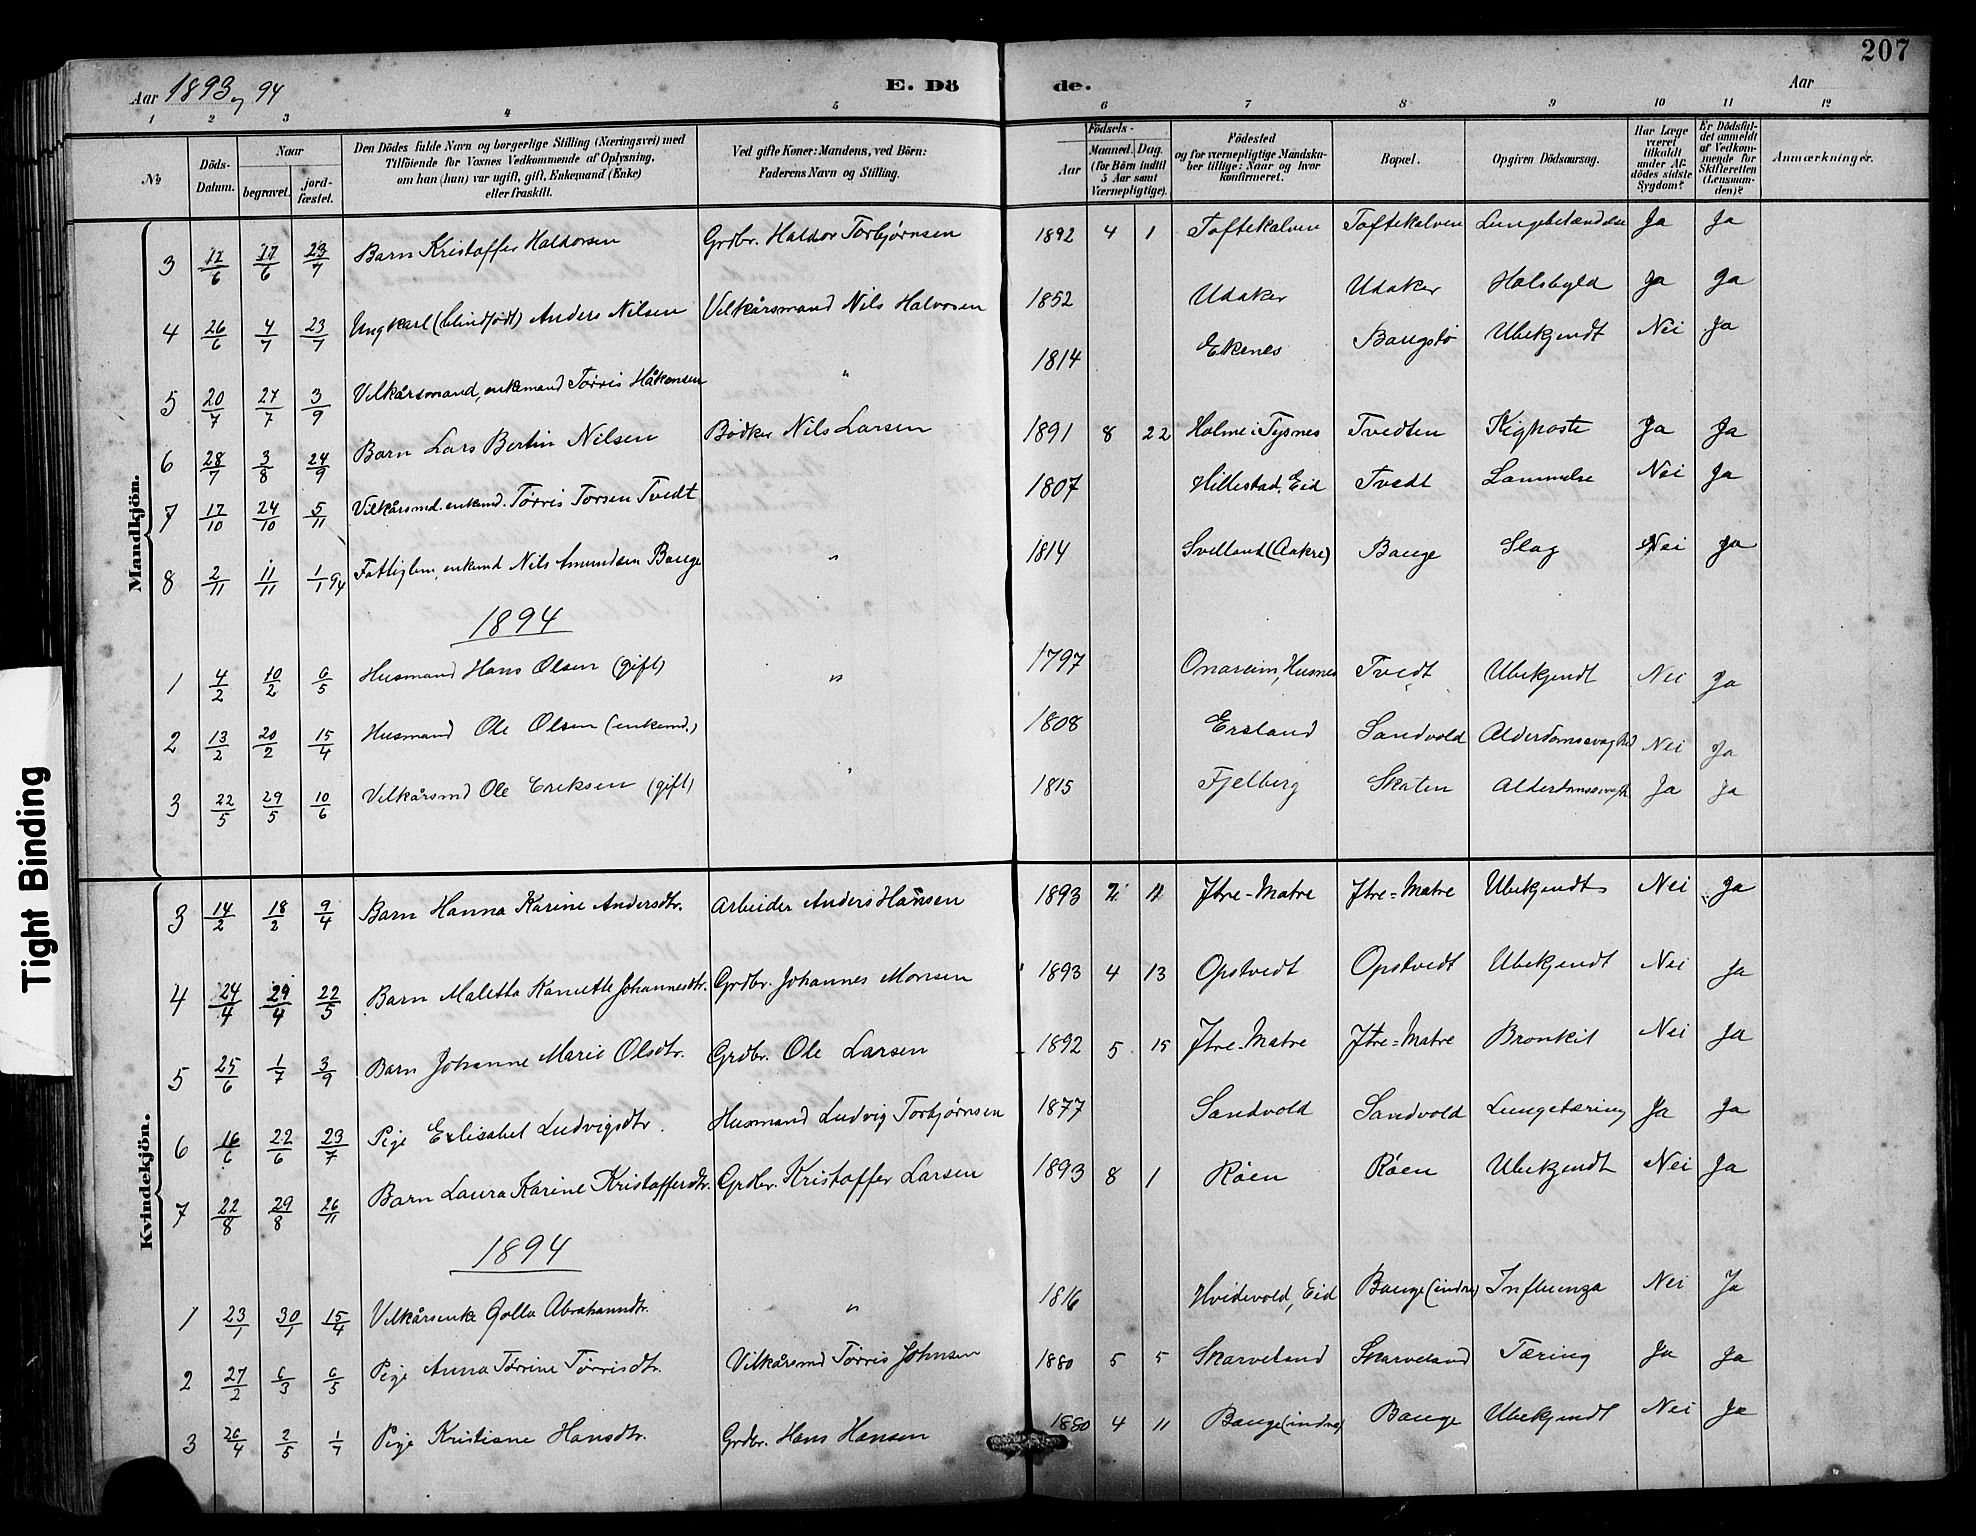 207
Aar 1893 og 94 E. Dö de. Aar
1 2 3 4 5 6 7 8 9 10 11 12
№
Döds-Datum.
Naar
begravet.
jord-fæstet.
Den Dödes fulde Navn og borgerlige Stilling (Næringsvei) med
Tilföiende for Voxnes Vedkommende af Oplysning,
om han (hun) var ugift, gift, Enkemand (Enke)
eller fraskilt.
Ved gifte Koner: Mandens, ved Börn:
Faderens Navn og Stilling.
Födsels-
Aar
Maaned. Dag.
(for Börn indtil
5 Aar samt
Værnepligtige).
Födested
og for værnepligtige Mandska-
ber tillige: Naar og hvor
konfirmeret.
Bopæl.
Opgiven Dödsaarsag.
Har Læge
været
tilkaldt
under Af-
dödes sidste
Sygdom?
Er Dödsfal-
det anmeldt
af Vedkom-
mende for
Skifteretten
(Lensman-
den)?
Anmærkninger.
Mandkjön.
3 12/6 17/6 23/7 Barn Kristoffer Haldorsen Grdbr. Haldor Torbjørnsen 1892 4 1 Toftekalven Toftekalven Lungebetændelse Ja Ja
4 26/6 4/7 23/7 Ungkarl (blindfødt) Anders Nilsen Vilkårsmand Nils Halvorsen 1852 Udaker Udaker Halsbyld Ja Ja
5 20/7 27/7 3/9 Vilkårsmand, enkemand Tørris Håkonsen " 1814 Ekenes Baugstø Ubekjendt Nei Ja
6 28/7 3/8 24/9 Barn Lars Bertin Nilsen Bødker Nils Larsen 1891 8 22 Holme i Tysnes Tvedten Kighoste Ja Ja
7 17/10 24/10 5/11 Vilkårsmd. enkemd. Tørris Torsen Tvedt 1807 Hillestad, Eid Tvedt Lammelse Nei Ja
8 2/11 11/11 1/1 94 Fattiglem, enkemd Nils Amundsen Bauge " 1814 Svelland (Aakre) Bauge Slag Nei Ja
1894
1 4/2 10/2 6/5 Husmand Hans Olsen (gift) " 1797 Onareim, Husnes Tvedt Ubekjendt Nei Ja
2 13/2 20/2 15/4 Husmand Ole Olsen (enkemd.) 1808 Ersland Sandvold Alderdomssvaghed Nei Ja
3 22/5 29/5 10/6 Vilkårsmd Ole Eriksen (gift) " 1815 Fjelberg Skåten Alderdomssvagh Ja Ja
Kvindekjön.
3 14/2 18/2 9/4 Barn Hanna Karine Andersdtr. Arbeider Anders Hansen 1893 2 11 Ytre-Matre Ytre=Matre Ubekjendt Nei Ja
4 24/4 29/4 22/5 Barn Maletta Kanutte Johannesdtr. Grdbr. Johannes Monsen 1893 4 13 Opstvedt Opstvedt Ubekjendt Nei Ja
5 25/6 1/7 3/9 Barn Johanne Marie Olsdtr. Grdbr. Ole Larsen 1892 5 15 Ytre-Matre Ytre=Matre Bronkit Nei Ja
6 16/6 22/6 23/7 Pige Erlisabet Ludvigsdtr. Husmand Ludvig Torbjørnsen 1877 Sandvold Sandvold Lungetæring Ja Ja
7 22/8 29/8 26/11 Barn Laura Karine Kristoffersdtr. Grdbr. Kristoffer Larsen 1893 8 1 Røen Røen Ubekjendt Nei Ja
1894
1 23/1 30/1 15/4 Vilkårsenke Golla Abrahamsdtr. " 1816 Hvidevold, Eid Bauge (indre) Influenza Nei Ja
2 27/2 6/3 6/5 Pige Anna Tørrine Tørrisdtr. Vilkårsmd Tørris Johnsen 1880 5 5 Skarveland Skarveland Tæring Ja Ja
3 26/4 2/5 1/7 Pige Kristiane Hansdtr. Grdbr. Hans Hansen 1880 4 11 Bauge (indre) Bauge Ubekjendt Nei Ja
Tight Binding